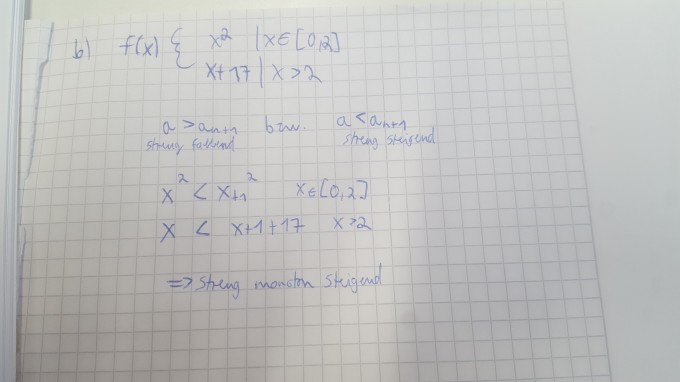 b) f(x) { x² | x∈[0,2]
x+17 | x>2
a > aₙ₊₁ bzw. a < aₙ₊₁
streng fallend streng steigend
x² < x₊₁² x∈[0,2]
x < x+1+17 x>2
=> streng monoton steigend